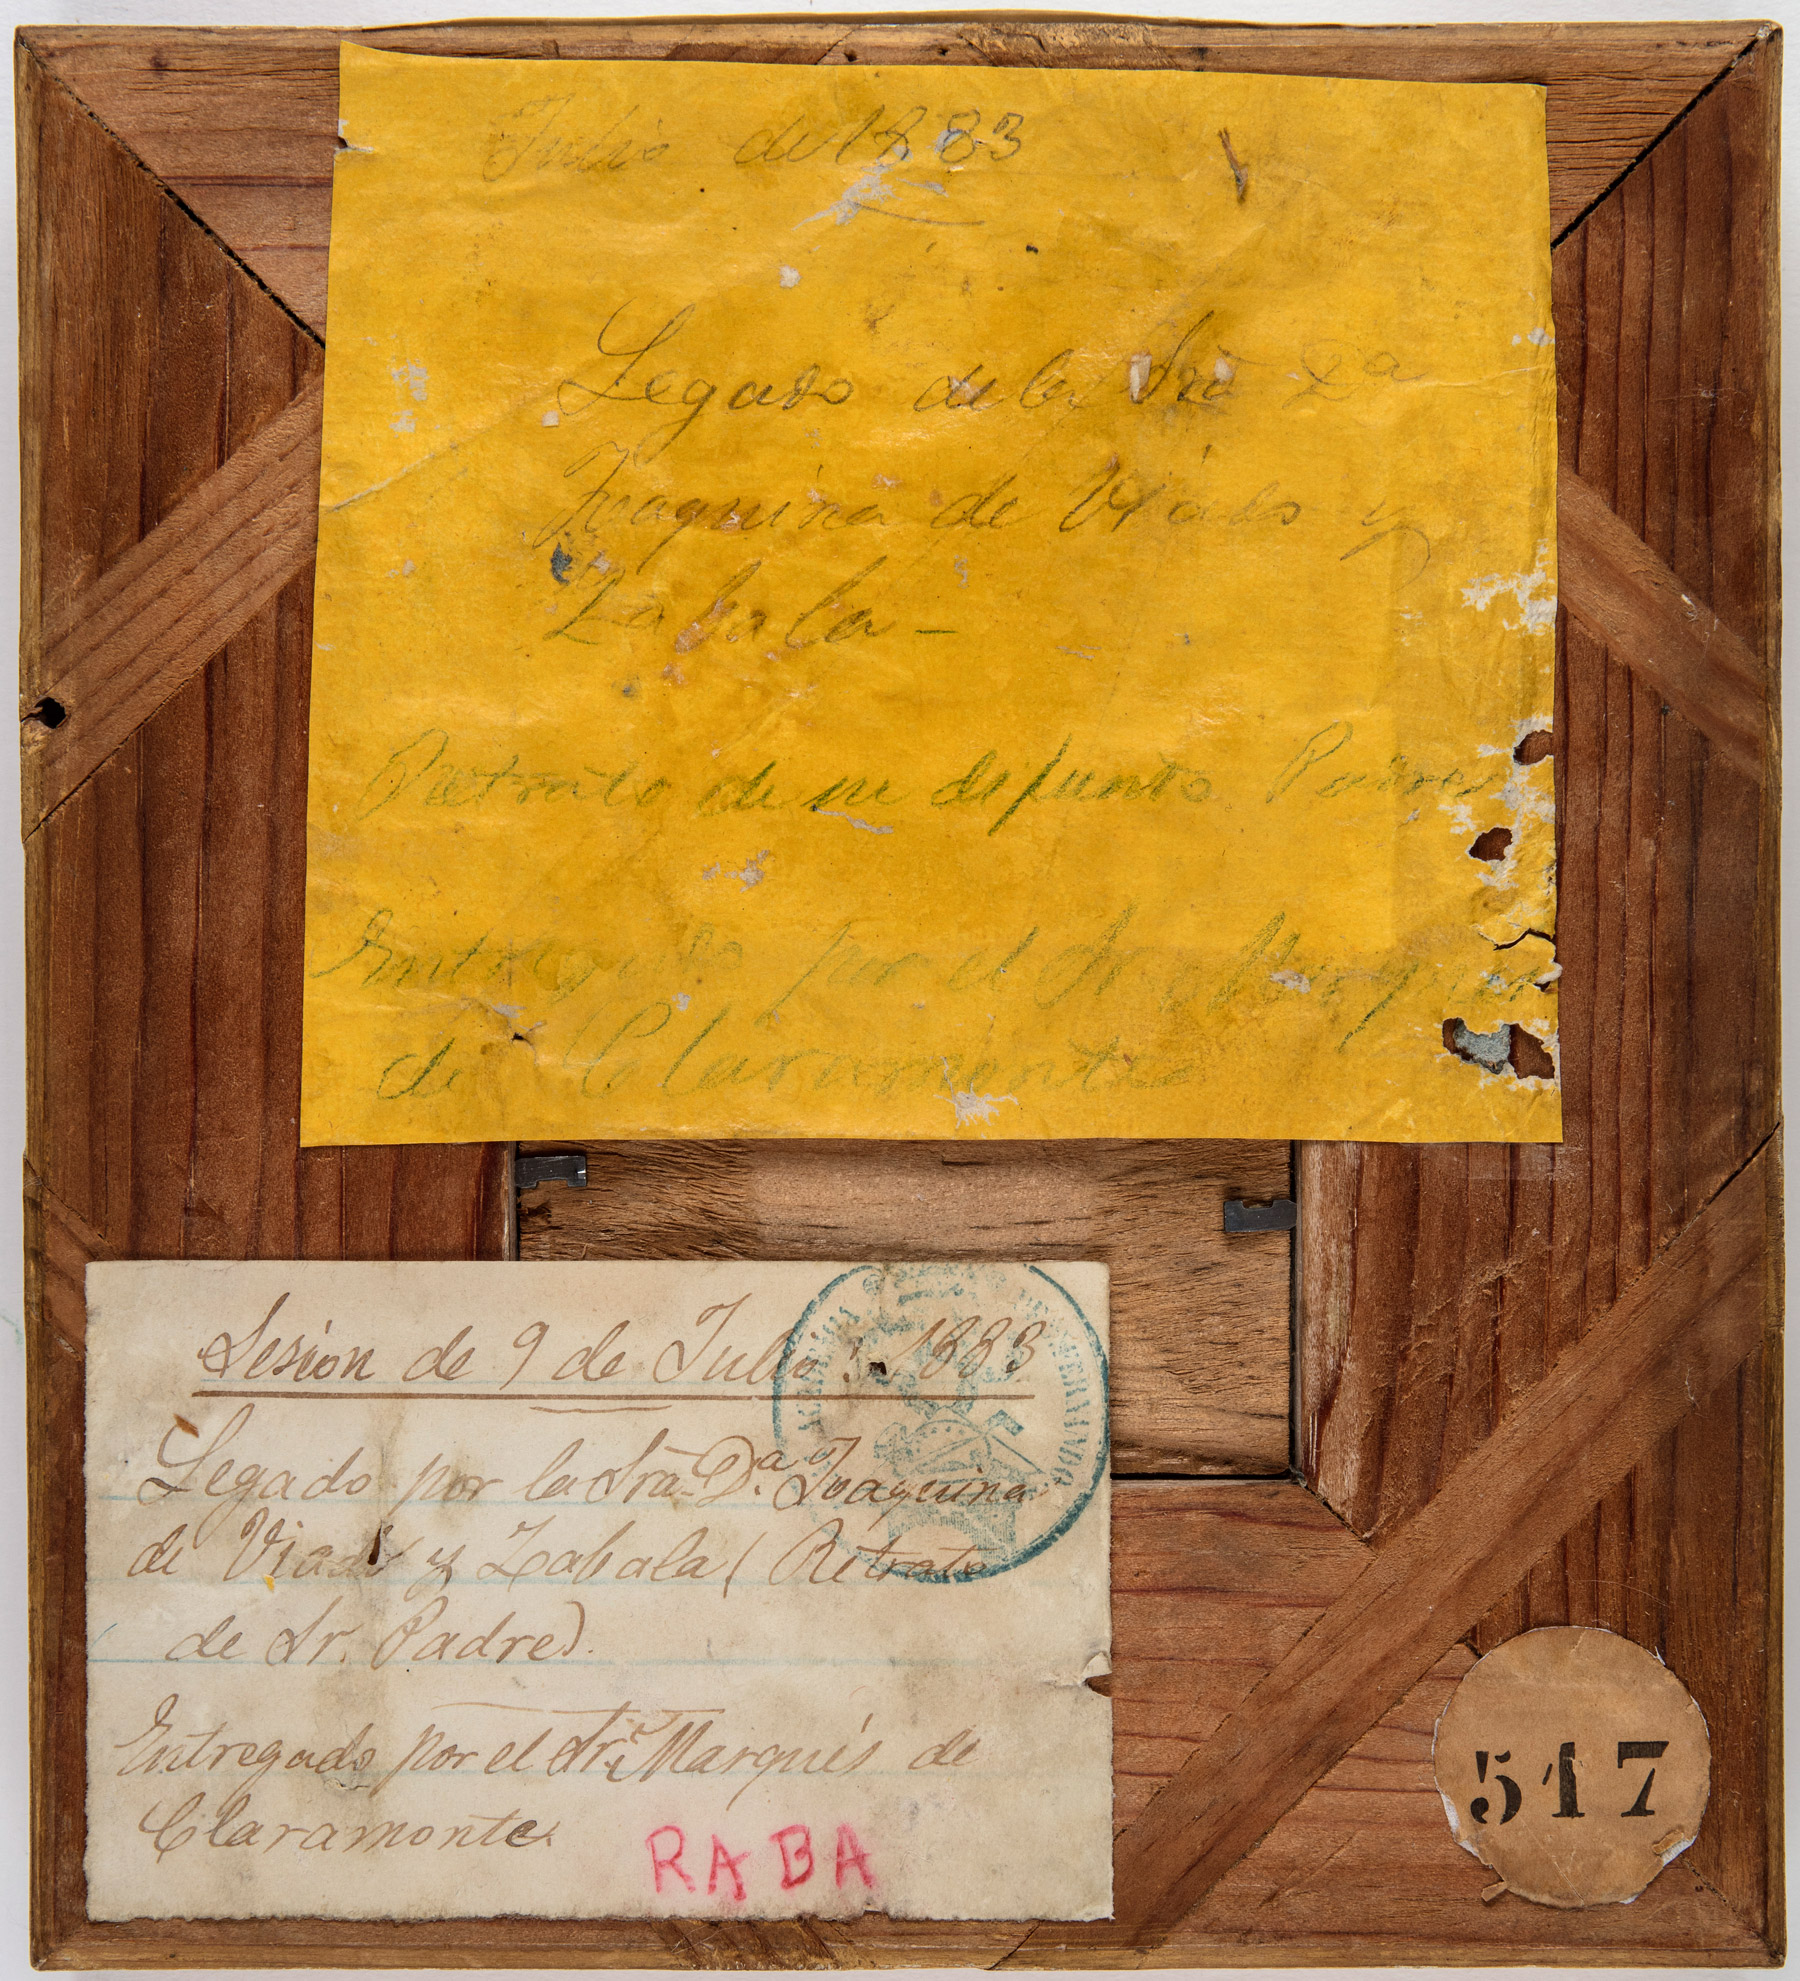 Julio de 1883
Legado de la Sra Da
Joaquina de Viado y
Zabala -
Retrato de su difunto Padre
Entregado por el Sr Marques
de Claramonte
Sesion de 9 de Julio 1883
Legado por la Sra. Da. Joaquina
de Viado y Zabala (Retrato
de Sr. Padre).
Entregado por el Sr. Marqués de
Claramonte.
RABA
517